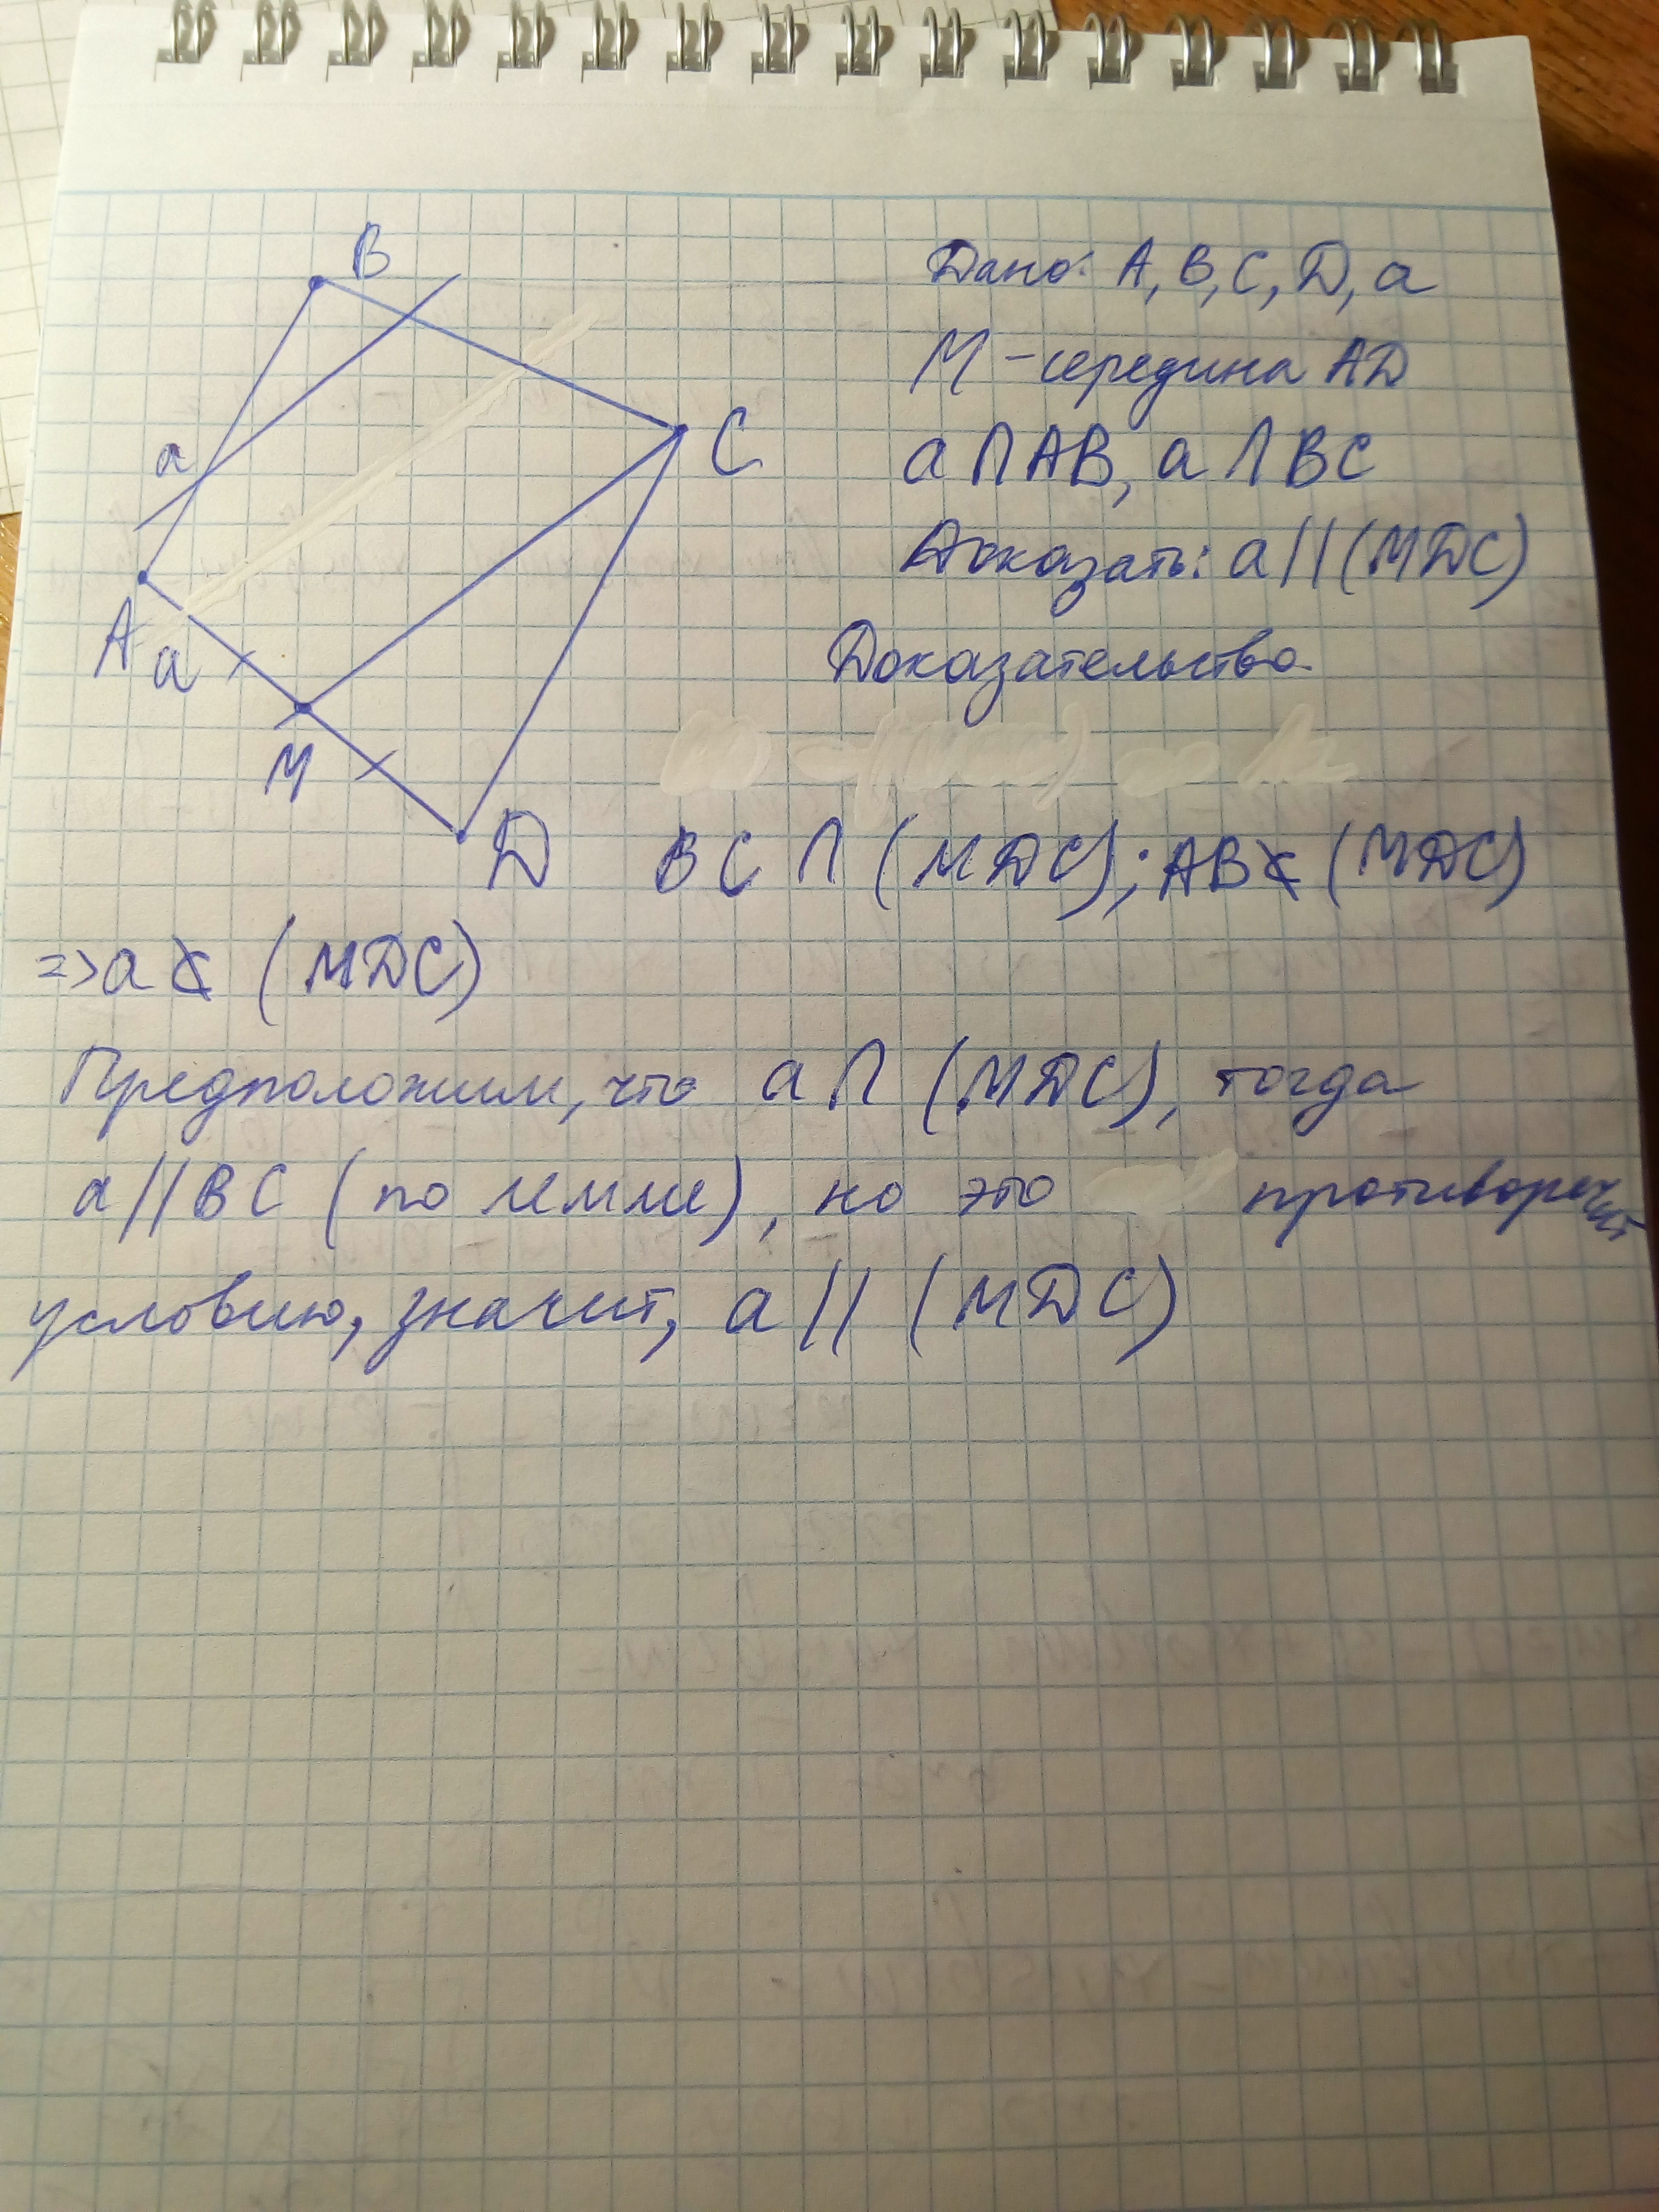 B
a
C
A
a
M
D
Дано: A, B, C, D, a
M – середина AD
a ∩ AB, a ∩ BC
Доказать: a || (MDC)
Доказательство
BC ∩ (MDC); AB ⊄ (MDC)
=> a ⊄ (MDC)
Предположим, что a ∩ (MDC), тогда
a || BC (по лемме), но это противоречит
условию, значит, a || (MDC)